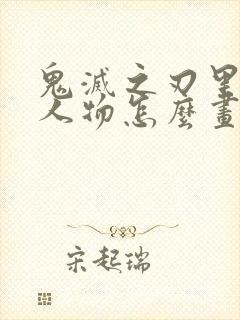 鬼滅之刃里
人物怎麼畫
宋起瑞